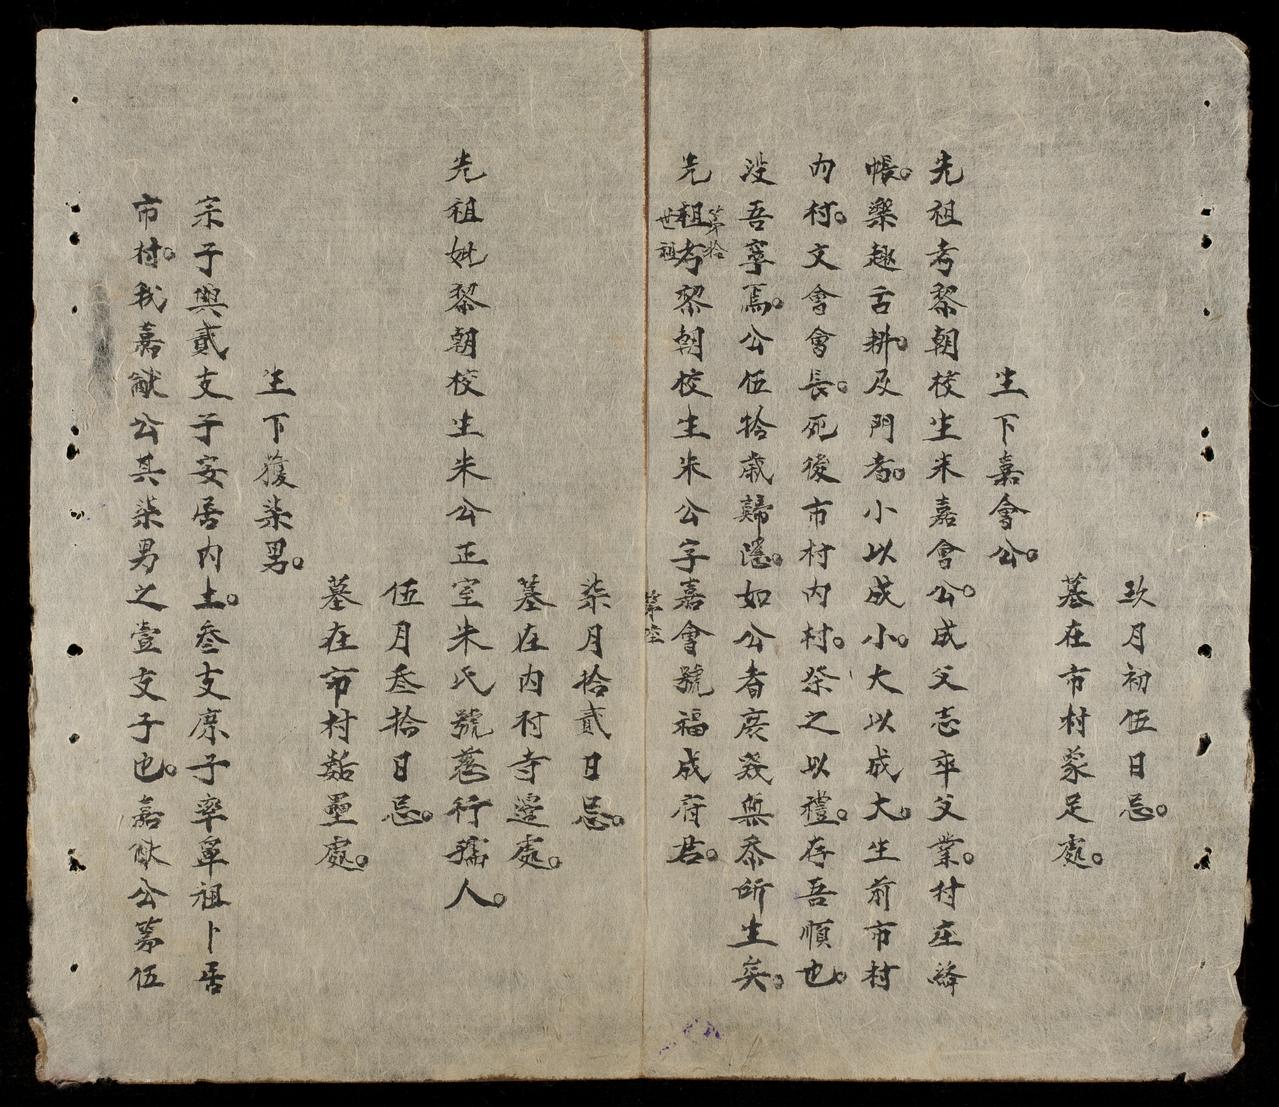 玖月初伍日忌。
墓在市村蒙足處。
生下嘉會公。
先祖考黎朝校生朱嘉會公。成父志卒父業。村庄絳
帳。樂趣舌耕。及門者。小以成小。大以成大。生前市村
內村。文會會長。死後市村內村。祭之以禮。存吾順也。
沒吾寧焉。公伍拾歲歸隱。如公者庶幾無忝所生矣。
第拾
世祖
先祖考黎朝校生朱公字嘉會號福成府君。
柒月拾貳日忌。
墓在內村寺邊處。
先祖妣黎朝校生朱公正室朱氏號慈行孺人。
伍月叁拾日忌。
墓在市村䴀壘處。
生下獲柒男。
宗子與貳支子安居內土。叁支庶子率厥祖卜居
市村。我嘉猷公其柒男之壹支子也。嘉猷公第伍